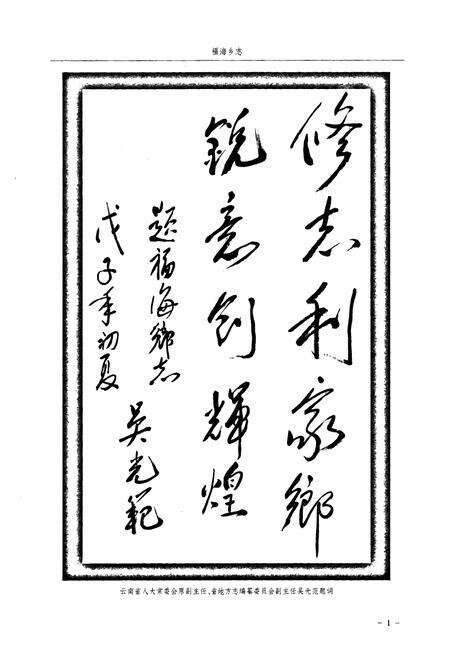 福海乡志
修志利家鄉
銳意創輝煌
题福海鄉志
戊子年初夏
吴光範
云南省人大常委会原副主任、省地方志编纂委员会副主任吴光范题词
- 1 -